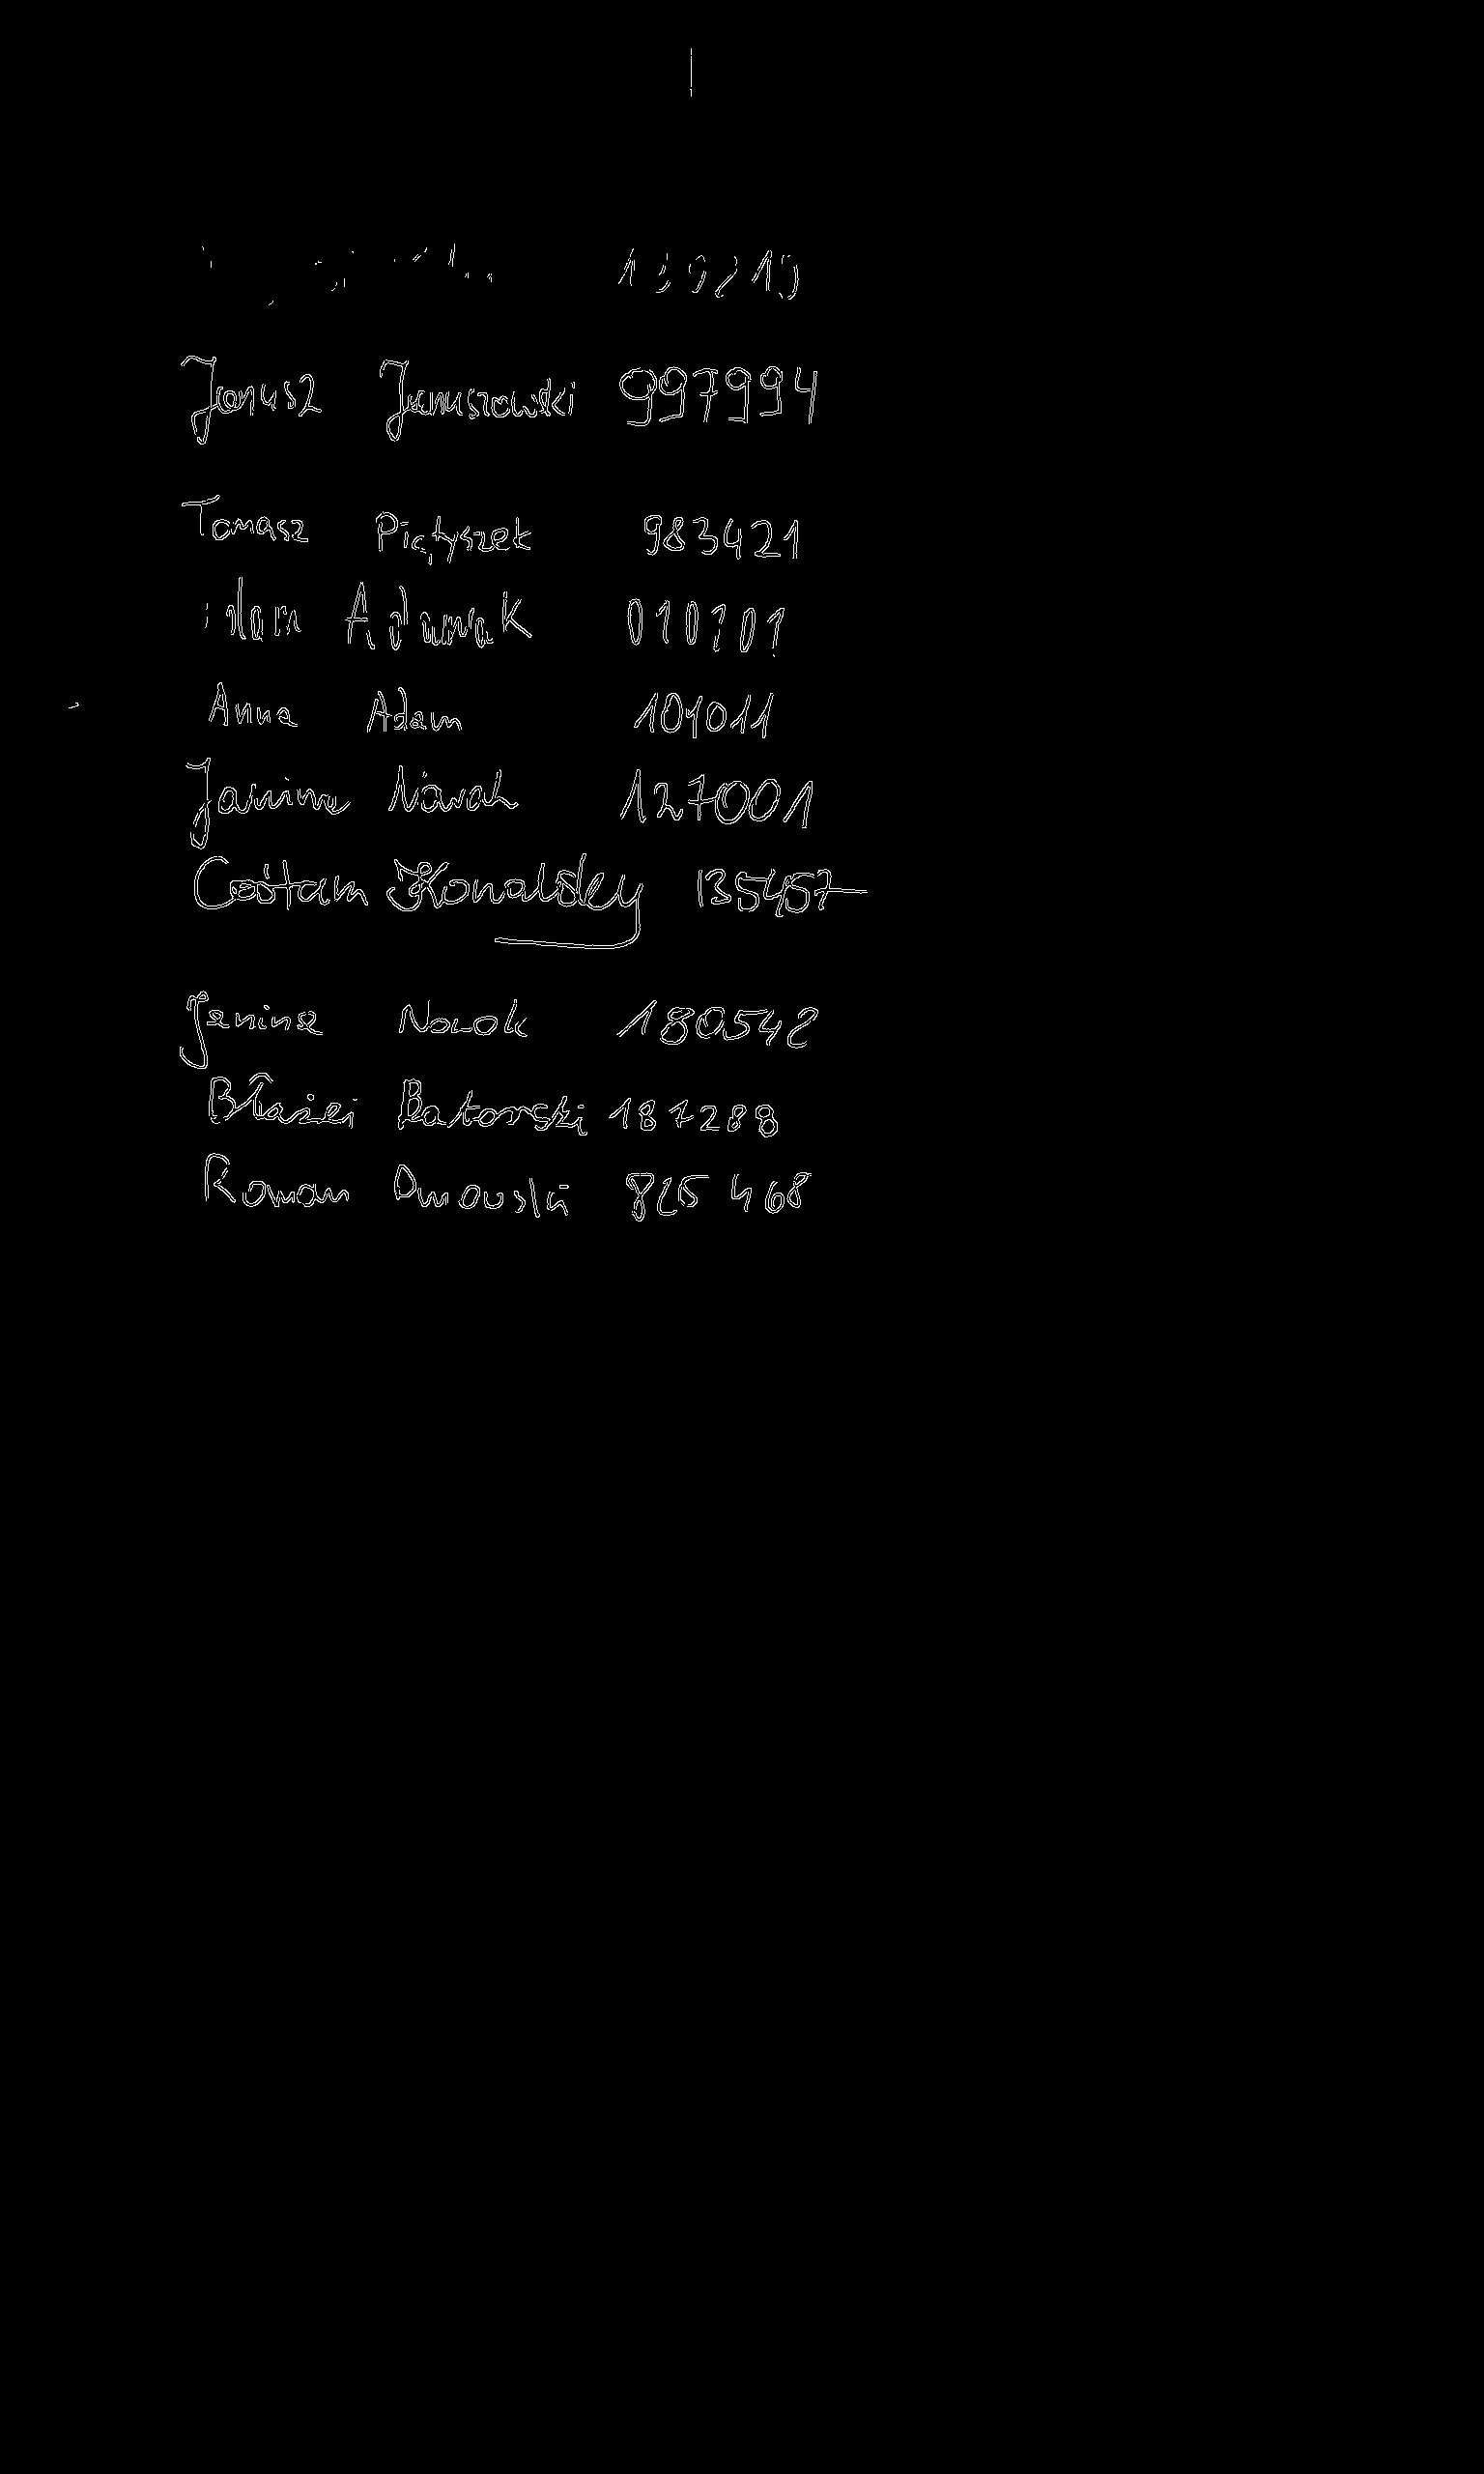 Janusz Januszowski 997994
Tomasz Piątyszek 983421
Adam Adamiak 010101
Anna Adam 101011
Janina Nowak 127001
Cośtam Kowalsky 135457
Janina Nowak 180542
Błażej Batorski 187288
Roman Dmowski 825468